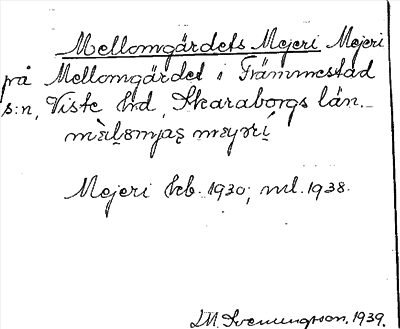 Mellomgärdets Mejeri Mejeri
på Mellomgärdet i Främmestad
s:n, Viste hd, Skaraborgs län.
Mejeri keb. 1930; ml. 1938.
Svenungsson, 1939.